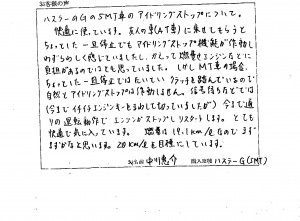 お客様の声
ハスラーのGの5MT車のアイドリングストップについて。
快適に使っています。友人の車(AT車)に乗せてもらうと
ちょっとした一旦停止でもアイドリングストップ機能が作動し
めずらしく感じていましたが、かえって燃費やエンジンなどに
負担があるのでは?とも思っていました。しかしMT車の場合、
ちょっとした一旦停止ではだいたいクラッチを踏んでいるので
自然とアイドリングストップは作動しません。信号待ちなどでは
(今までイチイチエンジンキーを切っていましたが)今まで通
りの運転動作でエンジンがストップしリスタートします。とても
快適で気に入っています。燃費は19.1km/ℓなのでまず
まずかなと思います。20km/ℓを目標にしています。
お名前 中川恵介 購入車種 ハスラーG(5MT)